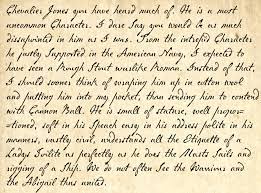 Chevalier Jones you have heard much of. He is a most
uncommon Character. I dare Say you would be as much
dissapointed in him as I was. From the intrepid Character
he justly Supported in the American Navy, I expected to
have seen a Rough Stout warlike Roman. Instead of that
I should sooner think of wraping him up in cotton wool
and putting him into my pocket, than sending him to contend
with Cannon Ball. He is small of stature, well propor=
=tioned, soft in his Speech easy in his address polite in his
manners, vastly civil, understands all the Etiquette of a
Ladys Toilite as perfectly as he does the Masts Sails and
rigging of a Ship. We do not often See the Warriour and
the Abigail thus united.